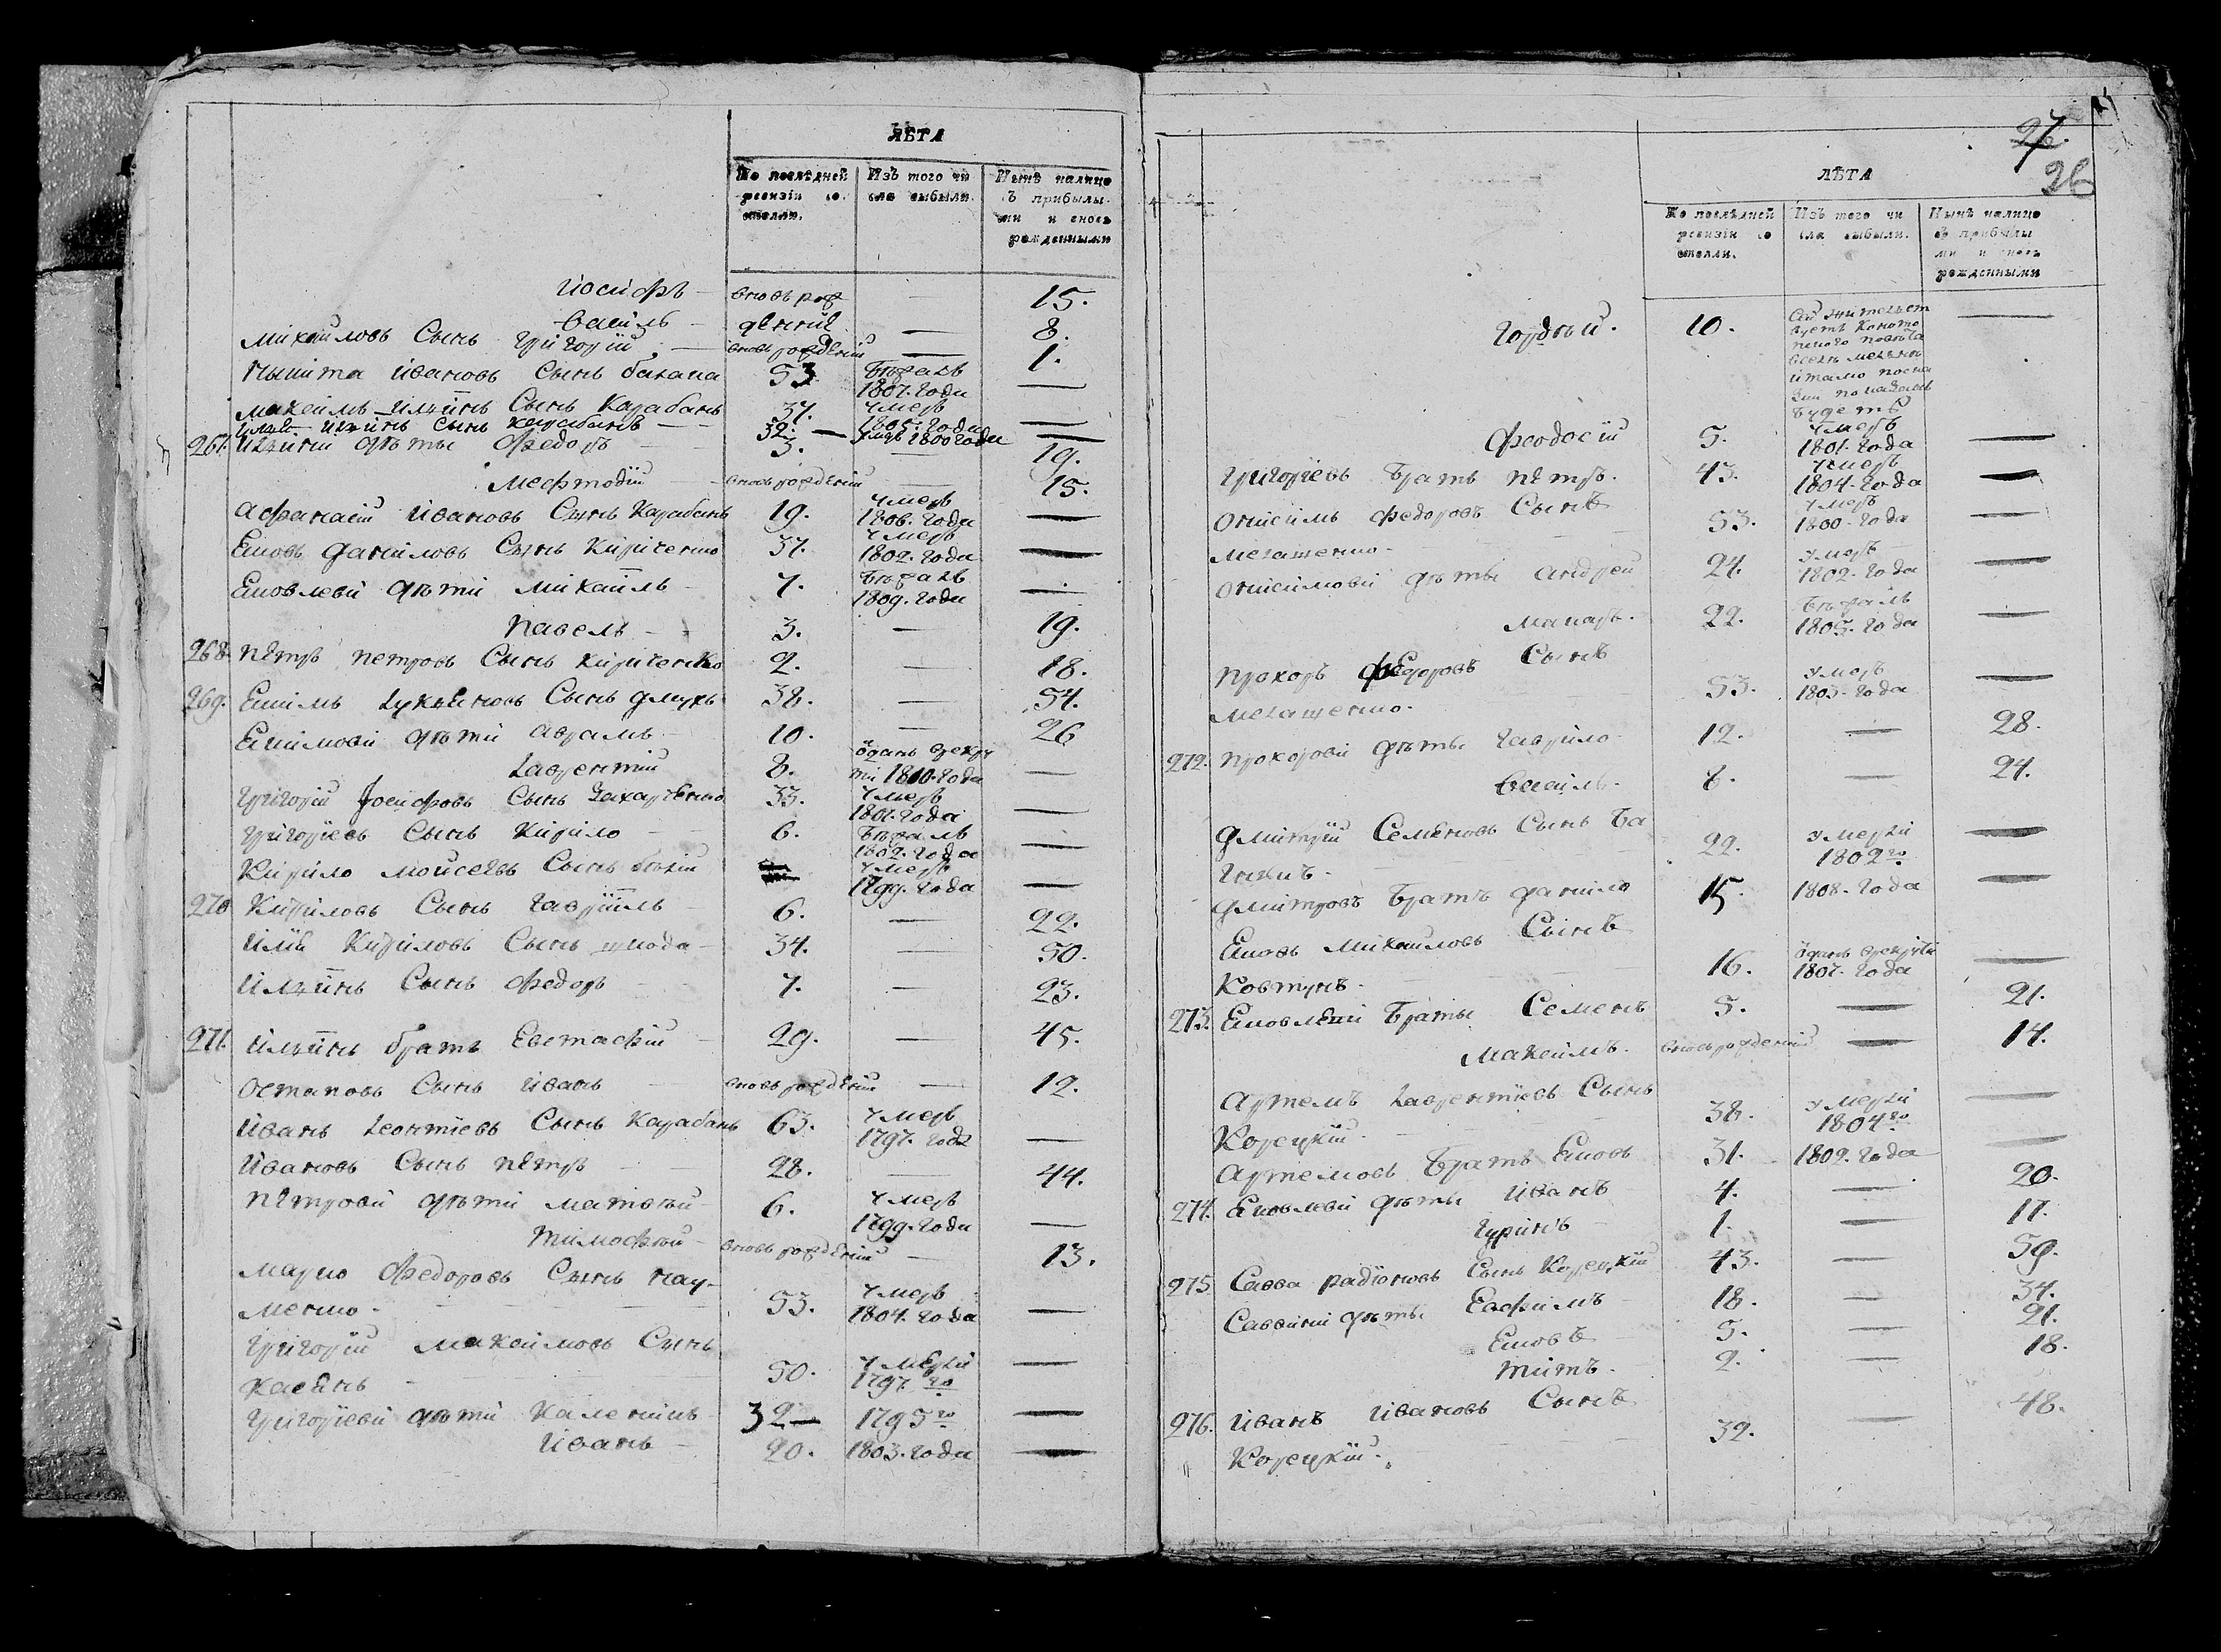 ЛѢТА
По послѣдней ревизіи со стояли.
Изъ того чи сла выбыли.
Нынѣ налицо съ прибылы ми и вновь рожденными
Иосифъ — вновь рож — 15.
Василь — денніе — 8.
Михайловъ Сынъ Григорій — вновь рожденій — 1.
Ивановъ Сынъ 53 бѣжалъ 1807. года —
Максимъ Ильинъ Сынъ Карабанъ 37. умеръ 1805. года —
Ильинъ Сынъ Карабанъ — 32. — умръ 1800 года —
267. Ильини дѣты Федоръ 3. — 19.
Мефтодій — вновь рожденій — 15.
Афанасій Ивановъ Сынъ Карабанъ 19. умеръ 1806. года —
Яковъ Даниловъ Сынъ Кириченко 37. умеръ 1802. года —
Яковлеви дѣти Михаилъ 7. бѣжалъ 1809. года —
Павелъ — 3. — 19.
268. Петръ Петровъ Сынъ Кириченко 2. — 18.
269. Екимъ Сынъ 38. — 54.
Екимови дѣти Аврамъ — 10. — 26
Лаврентій 8. одань врекру ти 1810. года —
Григорій Иосифовъ Сынъ Захарченко 33. умеръ 1801. года —
Григоріевъ Сынъ Кирило — 6. бѣжалъ 1802. года —
Кирило Мойсеевъ Сынъ умеръ 1799. года —
270 Кириловъ Сынъ Гавріилъ — 6. — 22.
Илія Кириловъ Сынъ — 34. — 50.
Ильинъ Сынъ Федоръ — 7. — 23.
271. Ильинъ братъ Евстафій — 29. — 45.
Остаповъ Сынъ Иванъ — вновь рожденій — 12.
Иванъ Леонтіевъ Сынъ Карабанъ 63. умеръ 1797. года —
Ивановъ Сынъ Петръ — 28. — 44.
Петрови дѣти Матвѣй — 6. умеръ 1799. года —
Тимофѣй — вновь рожденій — 13.
Марко Федоровъ Сынъ Нау-
менко. — 53. умеръ 1804. года —
Григорій Максимовъ Сынъ
Касянъ — 50. умерли 1797. го —
Григоріеви дѣти Каленикъ 32 — 1795 го —
Иванъ — 20. 1803. года —
27.
26
ЛѢТА
По послѣдней ревизіи со стояли.
Изъ того чи сла выбыли.
Нынѣ налицо съ прибылы ми и вновь рожденными
Гордѣй. 10. Сей жительст вуетъ Коното пского повѣта будетъ —
Феодосій 5. умеръ 1801. года —
Григоріевъ братъ Петръ. 43. умеръ 1804. года —
Онисимъ Федоровъ Сынъ
53. умеръ 1800. года —
Онисимови дѣты Андрей 24. умеръ 1802. года —
Макаръ. 22. бѣжалъ 1805. года —
Прохоръ Федоровъ Сынъ
53. умеръ 1803. года —
272. Прохорови дѣты Гаврило 12. — 28.
Василь. 8. — 24.
Дмитрій Семеновъ Сынъ
22. умерли 1802 го —
Дмитровъ братъ Данило 15. 1808. года —
Яковъ Михайловъ Сынъ
Ковтунъ. 16. одань врекрути 1807. года —
273. Яковлеви браты Семенъ 5. — 21.
Максимъ. вновь рожденій — 14.
Артемъ Лаврентіевъ Сынъ
Корецкій. 38. умерли 1804 го —
Артемовъ братъ Яковъ 31. 1802. года —
274. Яковлеви дѣты Иванъ 4. — 20.
Гуринъ 1. — 17.
275. Савва Радіоновъ Сынъ Корецкій 43. — 59.
Саввини дѣты Евфимъ 18. — 34.
Яковъ 5. — 21.
Титъ. 2. — 18.
276. Иванъ Ивановъ Сынъ
Корецкій. 32. — 48.